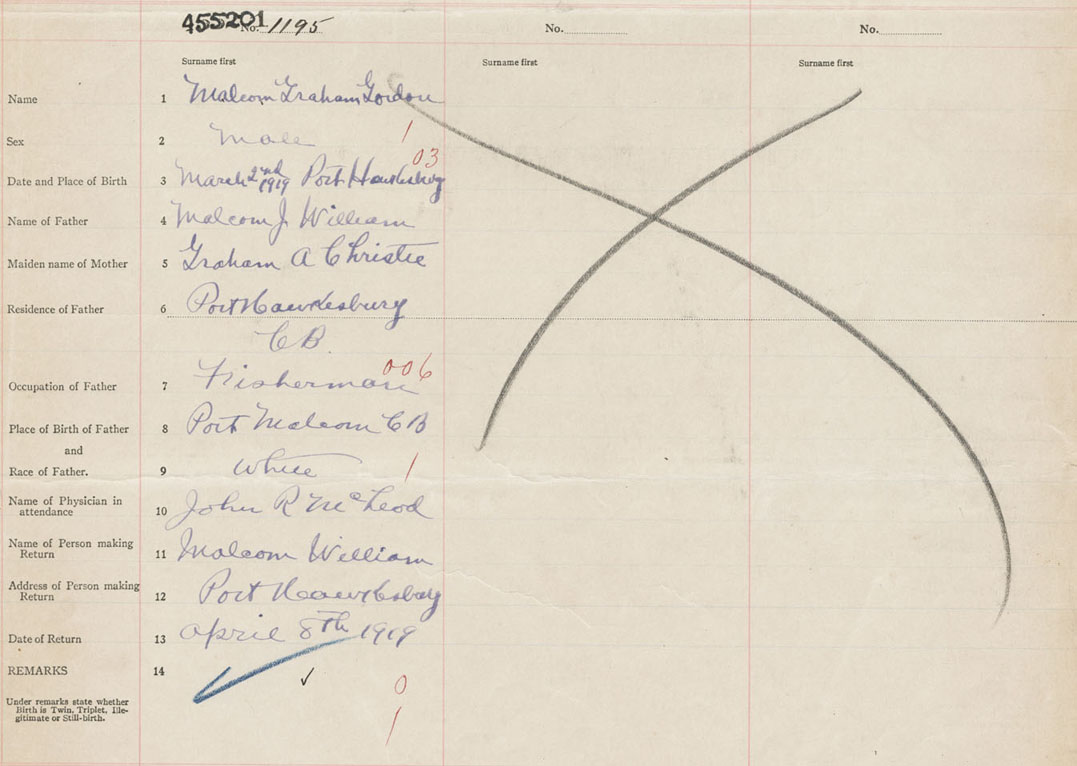 455201
No. 1195
No.
No.
Surname first
Surname first
Surname first
Name 1 Malcom Graham Gordon
Sex 2 Male 1
03
Date and Place of Birth 3 March 2nd 1919 Port Hawkesbury
Name of Father 4 Malcom J William
Maiden name of Mother 5 Graham A Christie
Residence of Father 6 Port Hawkesbury
CB
006
Occupation of Father 7 Fisherman
Place of Birth of Father 8 Port Malcom CB
and
Race of Father. 9 White 1
Name of Physician in
attendance 10 John R McLeod
Name of Person making
Return 11 Malcom William
Address of Person making
Return 12 Port Hawkesbury
Date of Return 13 April 8th 1919
REMARKS 14
0
Under remarks state whether
Birth is Twin, Triplet, Ille-
gitimate or Still-birth.
1